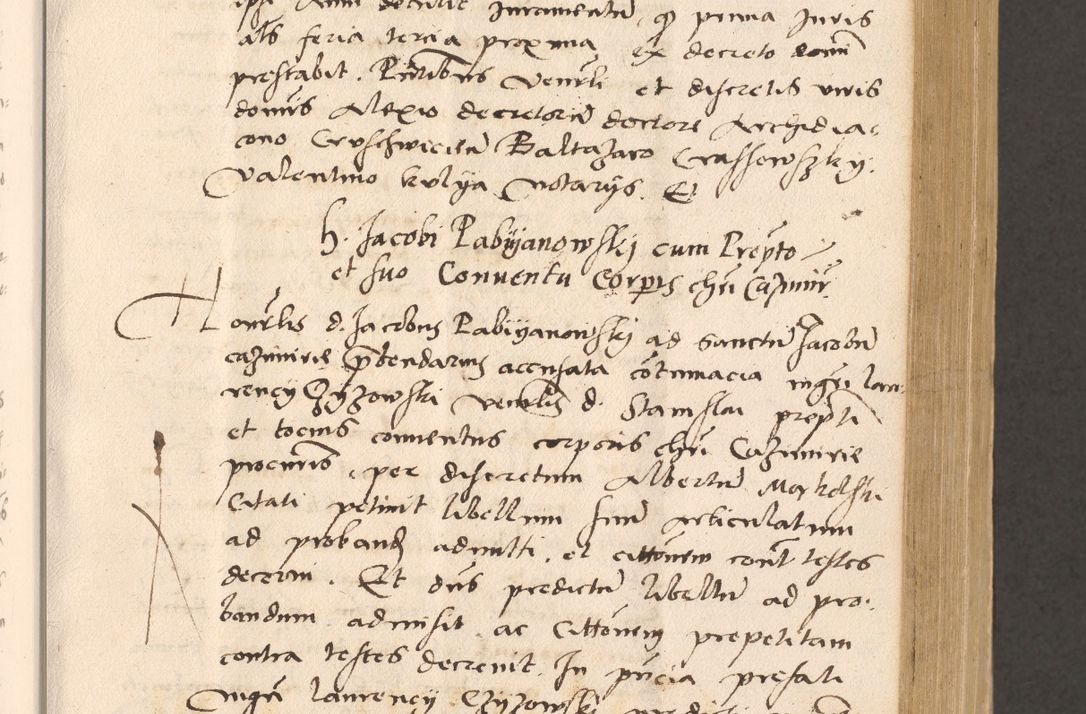 ipse Anni decriis Juramentū, qꝫ prima Juris
als feria tercia proxima ex decreto domi
prestabit. Pntibus Venrli et discretis viris
domis Alexio decretorū doctore Archidia
cono Cruschwicien̄ Baltazaro Crassowszky.
Valentino kulya Notarijs. Et
h. Jacobi Pabyanowskj cum Prepto
et suo Conuentu Corpis chri Cazimir.
Honrlis d. Jacobus Pabiyanowsky ad sanctū Jacobū
cazimirie pbendarius accusata cōtumacia mgri lau
rency Czyzowski venrlis d. Stanislai prepti
et tocius conuentus corporis chri Cazimirie
procuris, per discretum Albertū Markelski
Citati petiuit libellum suū articulatum
ad proband admitti, et cittōnem contra testes
decerni. Et dns predictū libellū ad pro
bandum admisit ac cittōnem prepetitam
contra testes decreuit. In pncia prefati
mgri laurency Czyzowski